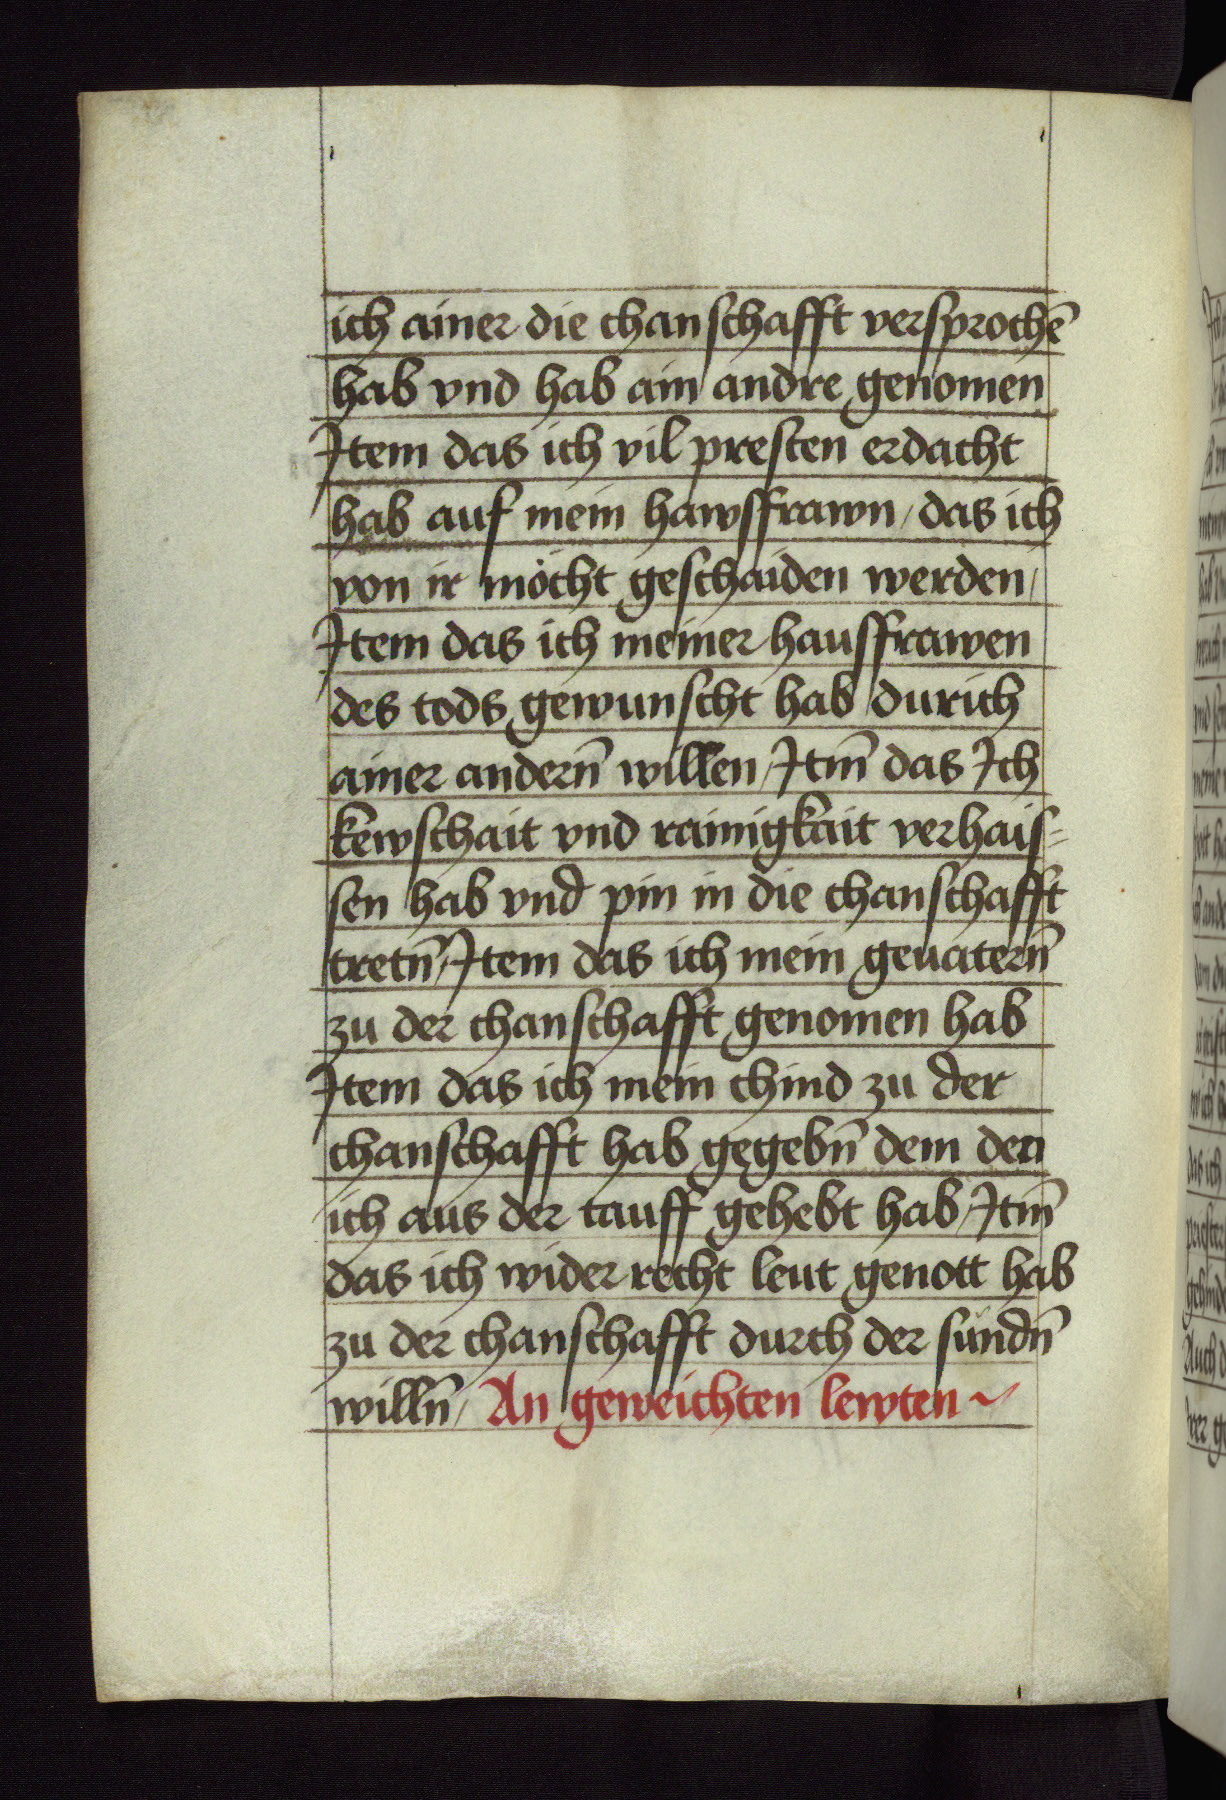 ich ainer die chanschafft versprochē
hab vnd hab ain andre genomen
Item das ich vil presten erdacht
hab auf mein hawsfrawn / das ich
von ir möcht geschaiden werden /
Item das ich meiner hausfrawen
des tods gewunscht hab durich
ainer andern̄ willen / Itm̄ das Ich
kewschait vnd rainigkait verhais=
sen hab vnd pin in die chanschafft
tretn̄ / Item das ich mein geuatern̄
zu der chanschafft genomen hab
Item das ich mein chind zu der
chanschafft hab gegebn̄ dem den
ich aus der tauff gehebt hab / Itm̄
das ich wider recht leut genott hab
zu der chanschafft durch der sündn̄
willn̄ / An geweichten lewten ~